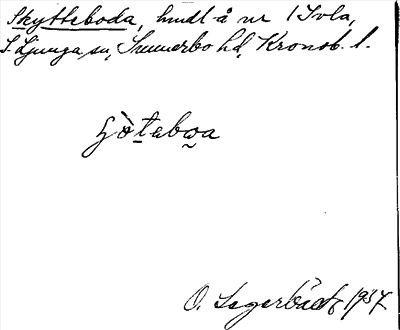 Skytteboda, hmdl å nr 1 Tvla,
S. Ljunga sn, Sunnerbo hd, Kronob. l.
O. Lagerbäck 1937